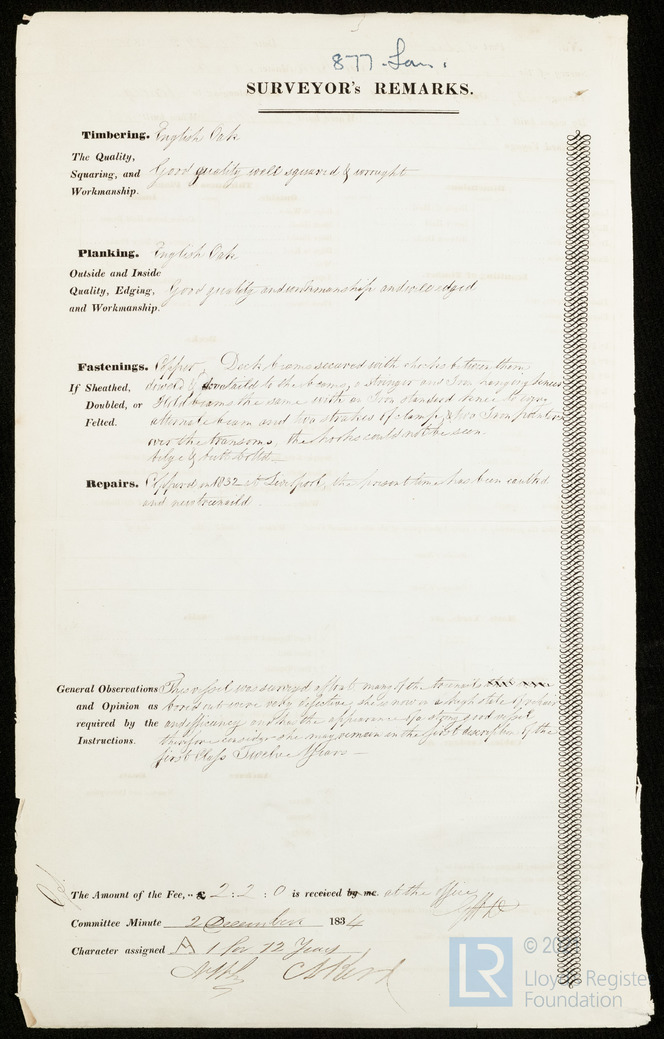 877 Lon.
SURVEYOR's REMARKS.
Timbering. English Oak
The Quality,
Squaring, and Good quality well squared & wrought
Workmanship.
Planking. English Oak
Outside and Inside
Quality, Edging, Good quality and workmanship and well edged
and Workmanship.
Fastenings. Copper, Deck beams secured with chocks between them
If Sheathed, & dovetaild to the beams, a stringer and Iron hanging knees
Doubled, or Hold beams the same with an Iron standard knee to every
Felted. alternate beam and two strakes of clamp & two Iron pointers
over the transoms, the hooks could not be seen
bilge & butt bolted
Repairs. Copperd in 1832 at Liverpool, the present time has been caulked
and new treenaild
General Observations This vessel was surveyd afloat many of the treenails
and Opinion as bored out were very defective, she is now in a high state of repair
required by the and efficiency and has the appearance of a strong good vessel
Instructions. therefore consider she may remain in the first description of the
first Class Twelve Years
The Amount of the Fee, £ 2 : 2 : 0 is received by me at the office
Committee Minute 2 December 1834
Character assigned A 1 for 12 Years
LR
©
Lloyd's Register
Foundation